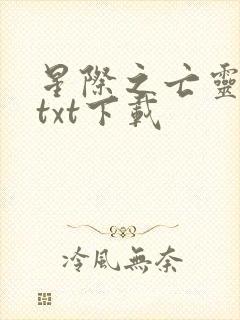 星際之亡靈
txt下載
冷風無奈